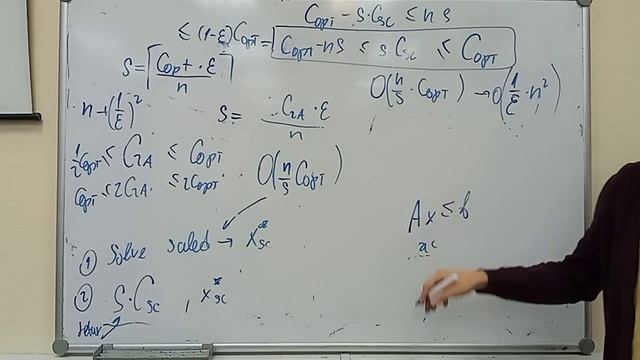 Copt - S·Csc ≤ n S
≤ (1-ε)Copt = Copt - nS ≤ S Csc ≤ Copt
S = ⌈Copt · ε / n⌉
O(n/S · Copt) → O(1/ε · n²)
n + (1/ε)²
S = C2A · ε / n
1/2 Copt ≤ C2A ≤ Copt
O(n/S Copt)
Copt ≤ 2C2A ≤ 2Copt
Ax ≤ b
① Solve scaled → x*sc
② S·Csc , x*sc